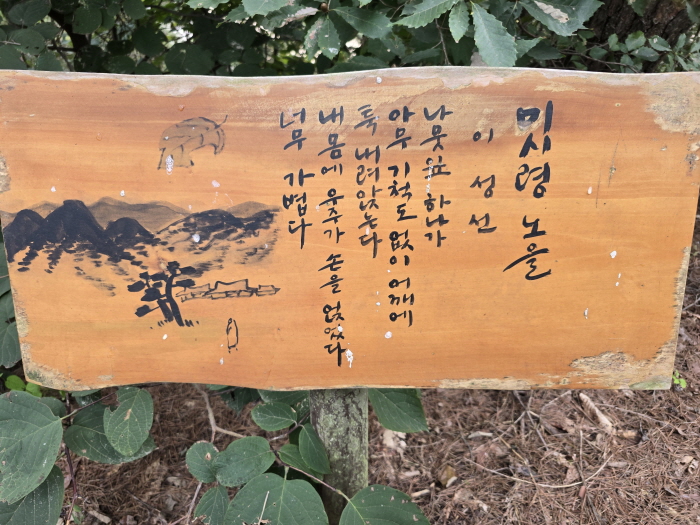 미시령 노을
이성선
나뭇잎 하나가
아무 기척도 없이 어깨에
툭 내려앉는다
내 몸에 우주가 손을 얹었다
너무 가볍다